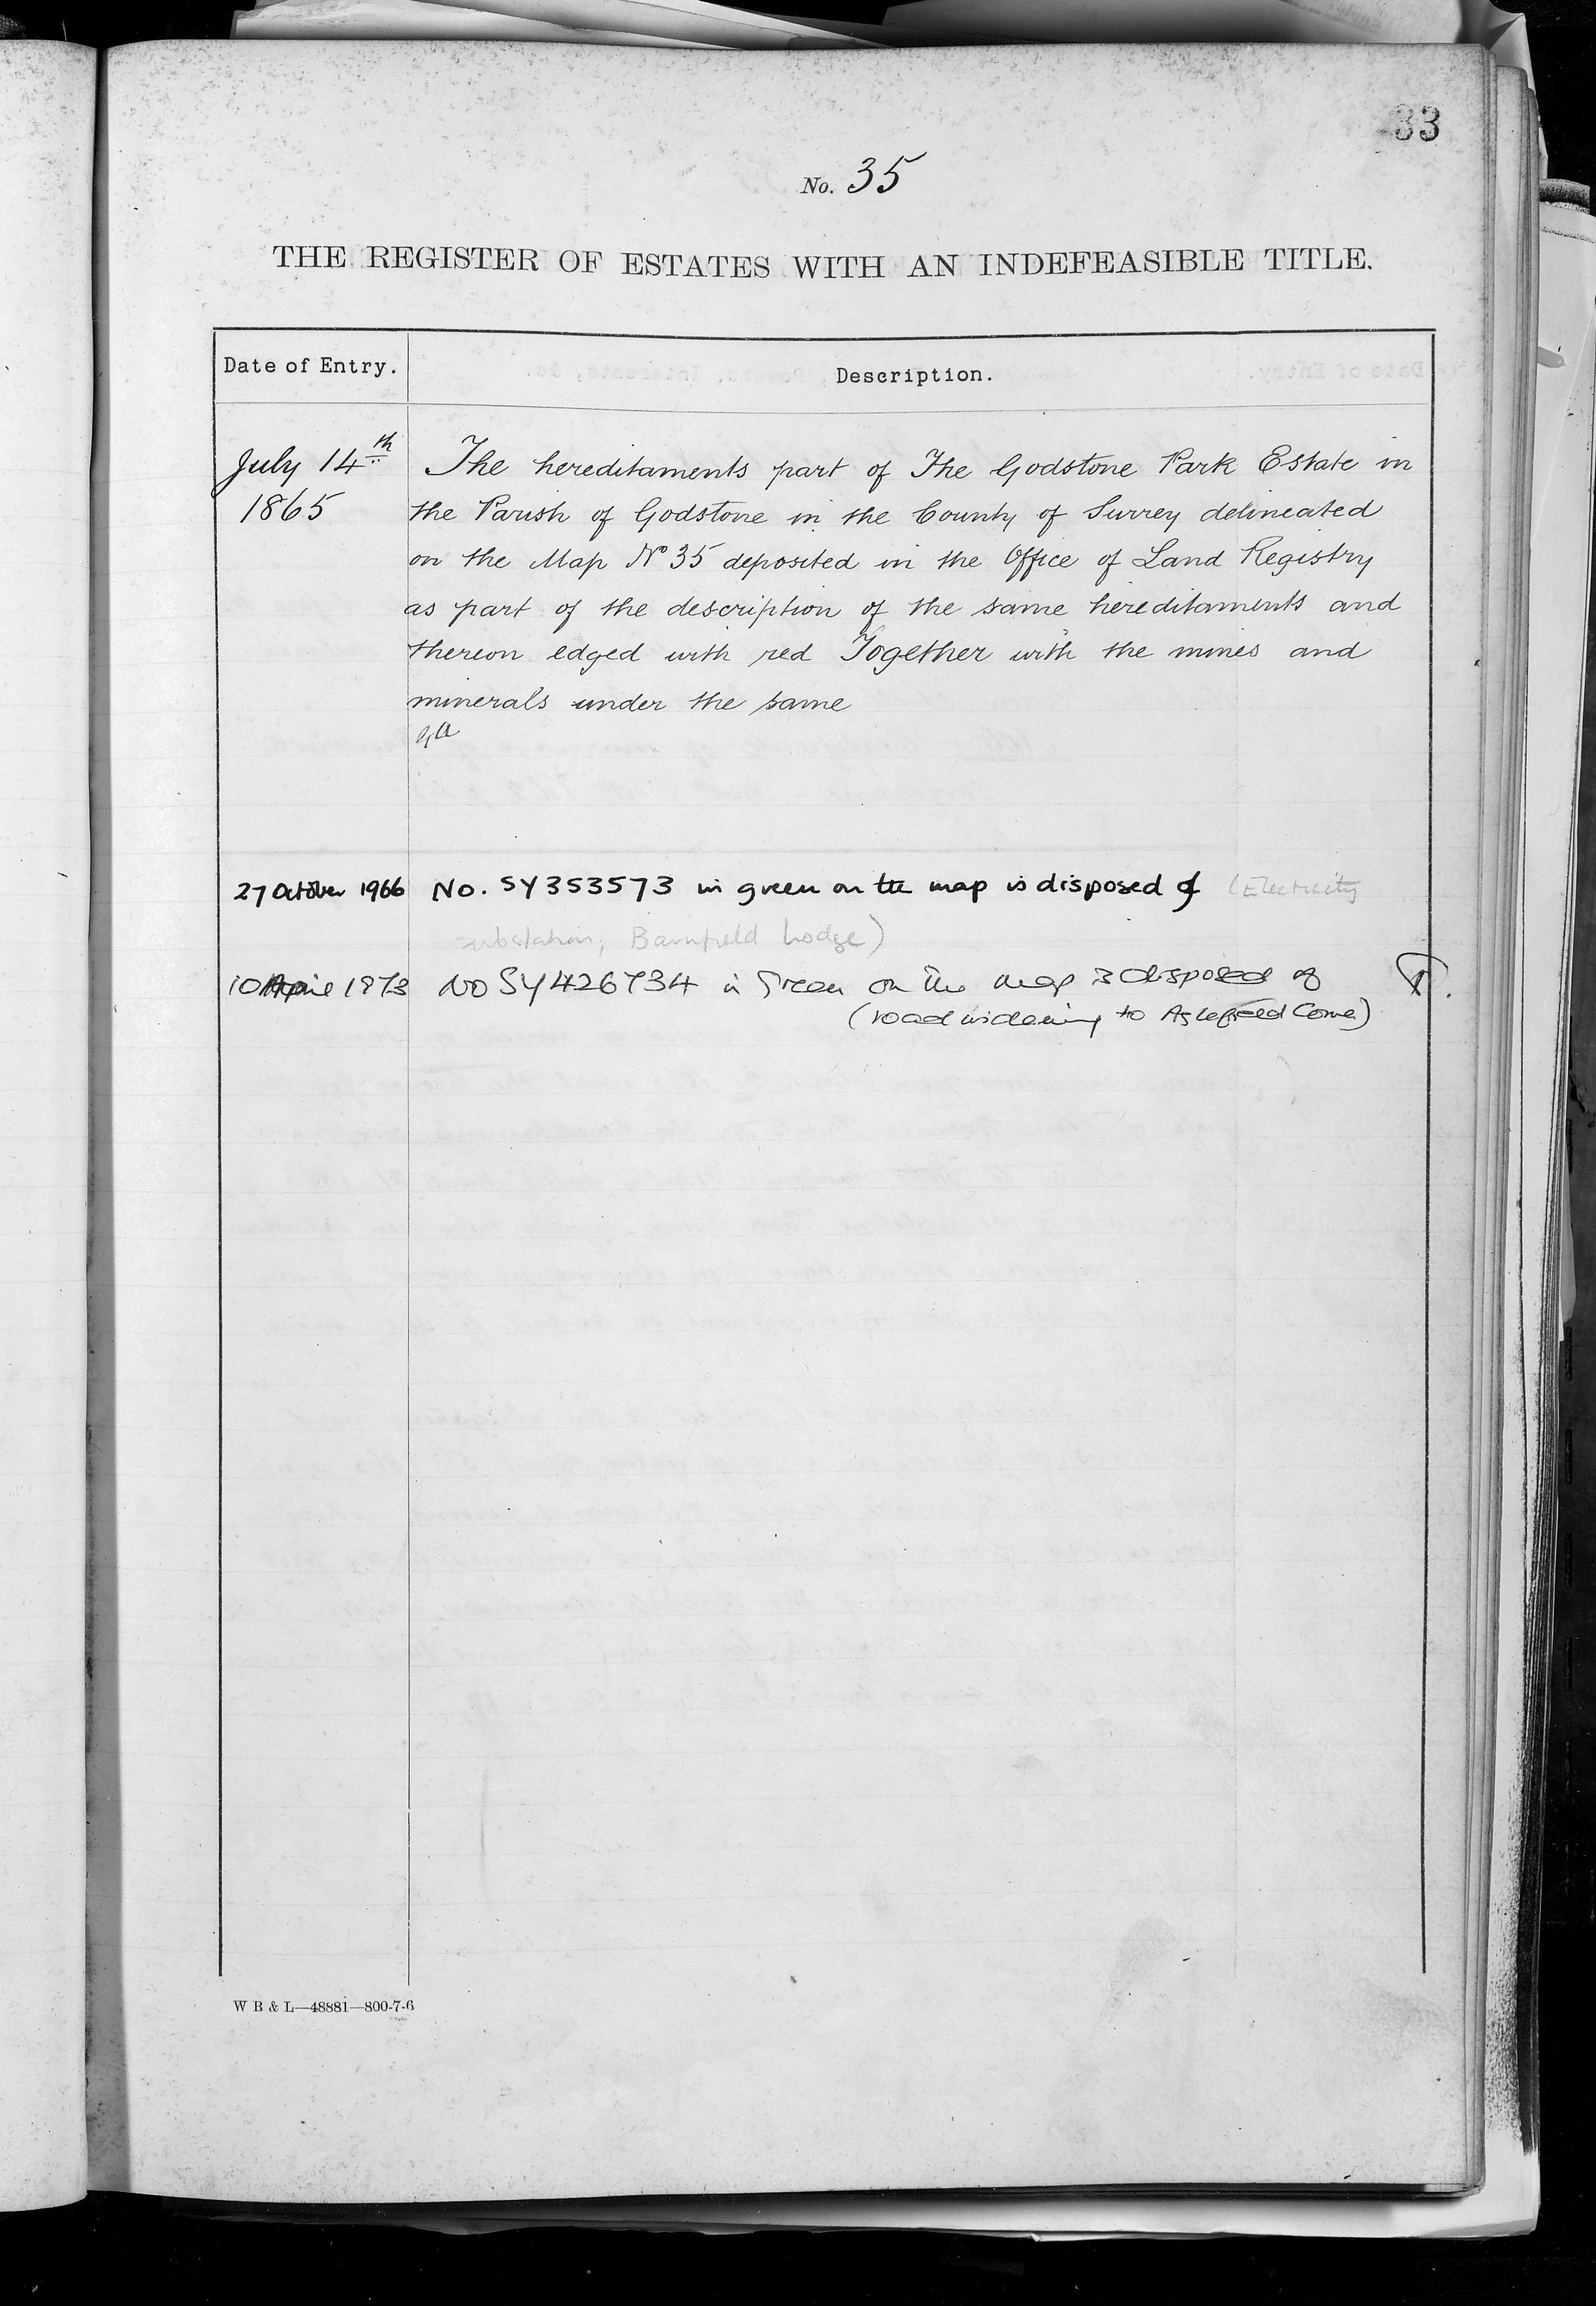 33
No. 35
THE REGISTER OF ESTATES WITH AN INDEFEASIBLE TITLE.
Date of Entry.
Description.
July 14th
1865
The hereditaments part of The Godstone Park Estate in
the Parish of Godstone in the County of Surrey delineated
on the Map No 35 deposited in the Office of Land Registry
as part of the description of the same hereditaments and
thereon edged with red Together with the mines and
minerals under the same
27 October 1966 No. SY353573 in green on the map is disposed of (Electricity
substation, Barnfield Lodge)
10 April 1973 NO SY426734 in Green on the map is disposed of
(road widening to)
W B & L—48881—800-7-6